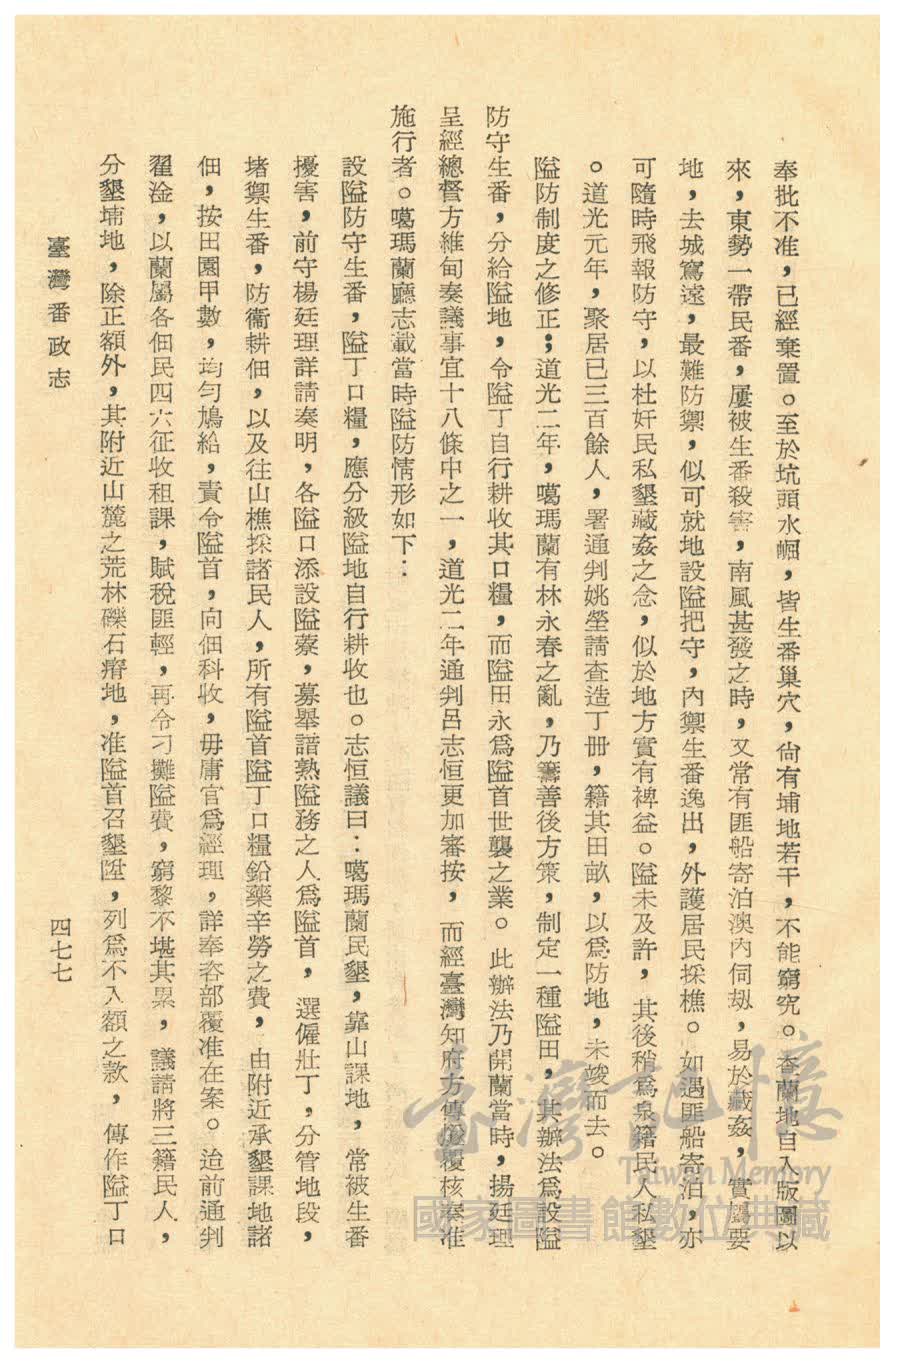 奉批不准，已經棄置。至於坑頭水崛，皆生番巢穴，尙有埔地若干，不能窮究。查蘭地自入版圖以
來，東勢一帶民番，屢被生番殺害，南風甚發之時，又常有匪船寄泊澳內伺刼，易於藏姦，實屬要
地，去城窵遠，最難防禦，似可就地設隘把守，內禦生番逸出，外護居民採樵。如遇匪船寄泊，亦
可隨時飛報防守，以杜奸民私墾藏姦之念，似於地方實有裨益。隘未及許，其後稍爲泉籍民人私墾
。道光元年，聚居已三百餘人，署通判姚瑩請查造丁冊，籍其田畝，以爲防地，未竣而去。
隘防制度之修正；道光二年，噶瑪蘭有林永春之亂，乃籌善後方策，制定一種隘田，其辦法爲設隘
防守生番，分給隘地，令隘丁自行耕收其口糧，而隘田永爲隘首世襲之業。此辦法乃開蘭當時，揚廷理
呈經總督方維甸奏議事宜十八條中之一，道光二年通判呂志恒更加審按，而經臺灣知府方傳穟覆核奏准
施行者。噶瑪蘭廳志載當時隘防情形如下：
設隘防守生番，隘丁口糧，應分級隘地自行耕收也。志恒議曰：噶瑪蘭民墾，靠山課地，常被生番
擾害，前守楊廷理詳請奏明，各隘口添設隘藔，募舉諳熟隘務之人爲隘首，選僱壯丁，分管地段，
堵禦生番，防衞耕佃，以及往山樵採諸民人，所有隘首隘丁口糧鉛藥辛勞之費，由附近承墾課地諸
佃，按田園甲數，均勻鳩給，責令隘首，向佃科收，毋庸官爲經理，詳奉咨部覆准在案。迨前通判
翟淦，以蘭屬各佃民四六征收租課，賦稅匪輕，再令刁攤隘費，窮黎不堪其累，議請將三籍民人，
分墾埔地，除正額外，其附近山麓之荒林礫石瘠地，准隘首召墾陞，列爲不入額之款，傳作隘丁口
臺灣番政志
四七七
臺灣記憶
Taiwan Memory
國家圖書館數位典藏